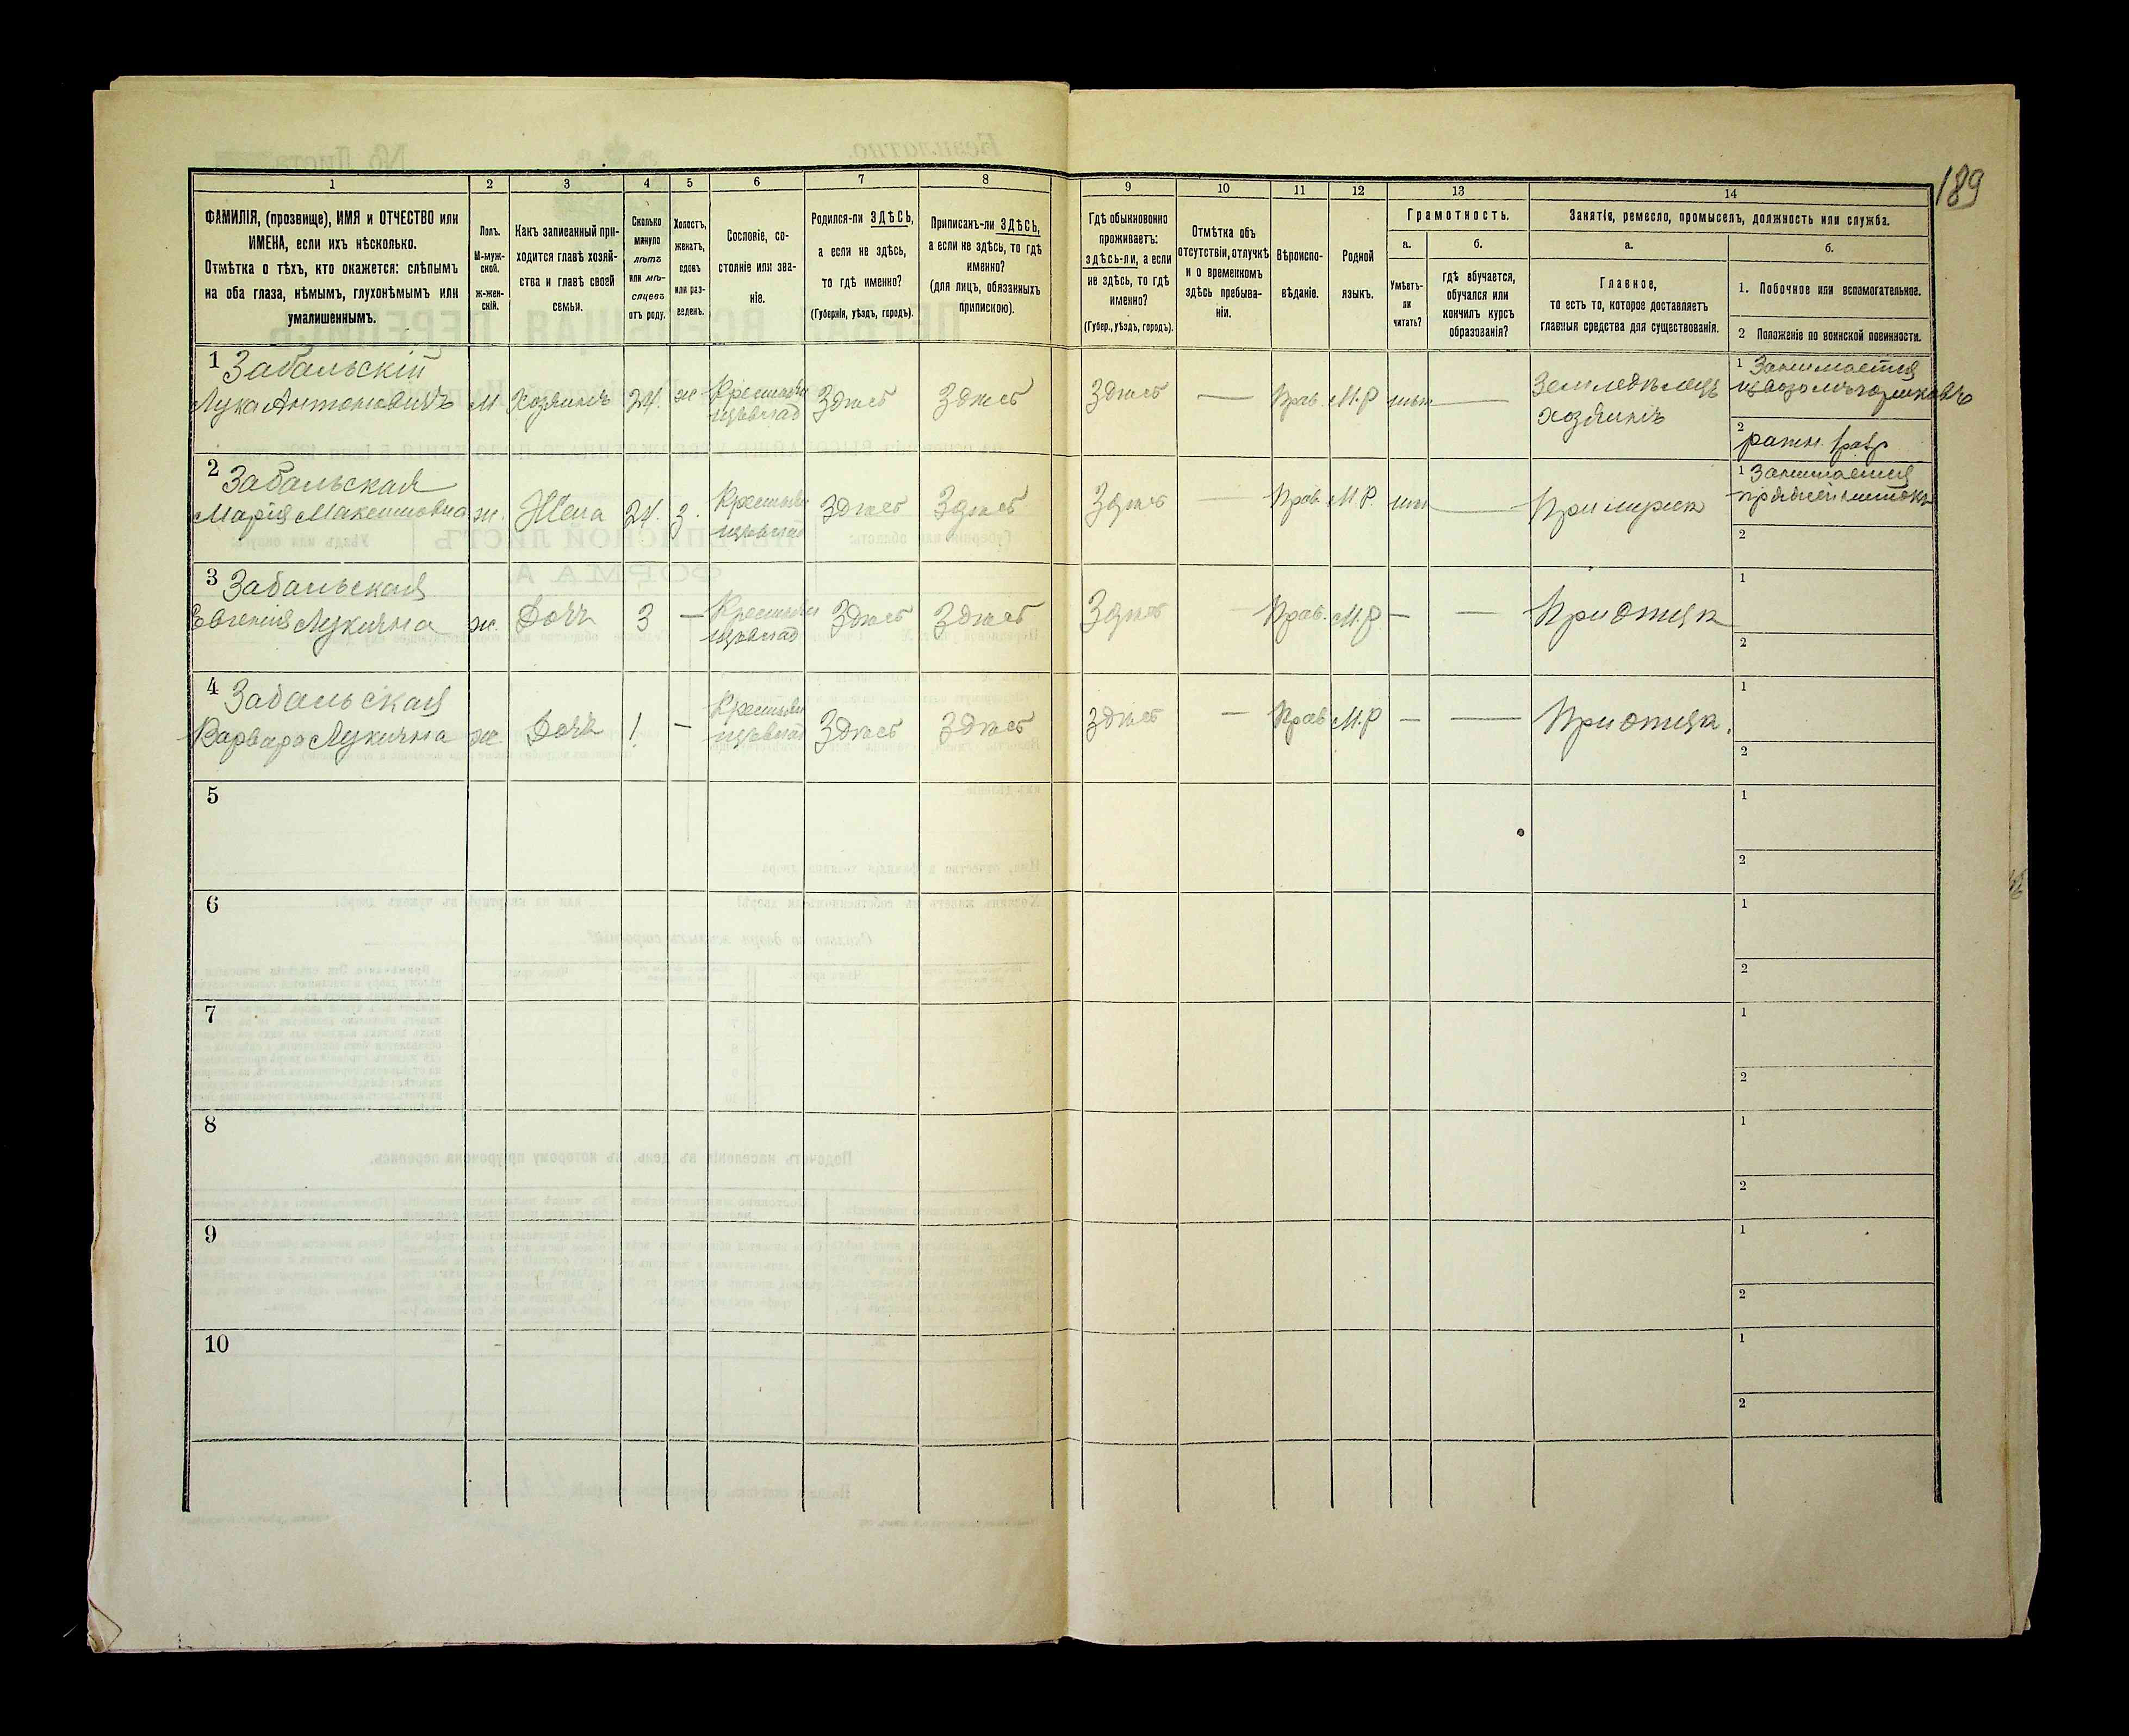 189
1 2 3 4 5 6 7 8 9 10 11 12 13 14
ФАМИЛІЯ, (прозвище), ИМЯ и ОТЧЕСТВО или
ИМЕНА, если ихъ нѣсколько.
Отмѣтка о тѣхъ, кто окажется: слѣпымъ
на оба глаза, нѣмымъ, глухонѣмымъ или
умалишеннымъ.
Полъ.
М-муж-
ской.
Ж-жен-
скій.
Какъ записанный при-
ходится главѣ хозяй-
ства и главѣ своей
семьи.
Сколько
минуло
лѣтъ
или мѣ-
сяцевъ
отъ роду.
Холостъ,
женатъ,
вдовъ
или раз-
веденъ.
Сословіе, со-
стояніе или зва-
ніе.
Родился-ли ЗДѢСЬ,
а если не здѣсь,
то гдѣ именно?
(Губернія, уѣздъ, городъ).
Приписанъ-ли ЗДѢСЬ,
а если не здѣсь, то гдѣ
именно?
(для лицъ, обязанныхъ
припискою).
Гдѣ обыкновенно
проживаетъ:
здѣсь-ли, а если
не здѣсь, то гдѣ
именно?
(Губер., уѣздъ, городъ).
Отмѣтка объ
отсутствіи, отлучкѣ
и о временномъ
здѣсь пребыва-
ніи.
Вѣроиспо-
вѣданіе.
Родной
языкъ.
Грамотность.
а.
Умѣетъ-
ли
читать?
б.
гдѣ обучается,
обучался или
кончилъ курсъ
образованія?
Занятіе, ремесло, промыселъ, должность или служба.
а.
Главное,
то есть то, которое доставляетъ
главныя средства для существованія.
б.
1. Побочное или вспомогательное.
2 Положеніе по воинской повинности.
1 Забальскій
Лука Антоновичъ м. Хозяинъ 24. ж Здѣсь Здѣсь Здѣсь — Прав. М.Р нѣт — Земледѣлецъ
хозяинъ
1 Занимается
2
ратн.
2 Забальская
Марія Максимовна ж. Жена 24. З. Здѣсь Здѣсь Здѣсь — Прав. М.Р. нѣт — При мужѣ
1 Занимается
2
3 Забальская
Евгенія Лукична ж. Дочь 3 — Здѣсь Здѣсь Здѣсь — Прав. М.Р — — При отцѣ
1
2
4 Забальская
Варвара Лукична ж Дочь 1 — Здѣсь Здѣсь Здѣсь — Прав М.Р — — При отцѣ.
1
2
5
1
2
6
1
2
7
1
2
8
1
2
9
1
2
10
1
2